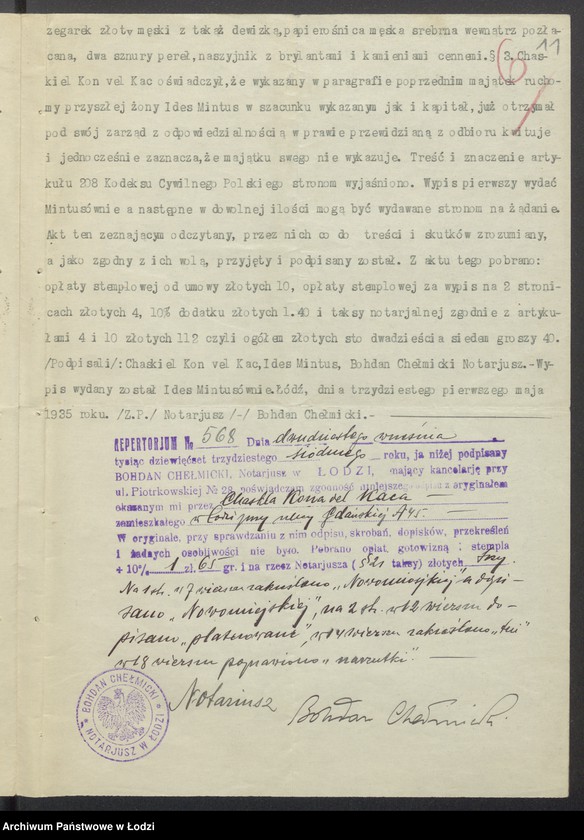 11
6
zegarek złoty męski z takąż dewizką,papierośnica męska srebrna wewnątrz pozła-
cana, dwa sznury pereł,naszyjnik z brylantami i kamieniami cennemi.§ 3.Chas-
kiel Kon vel Kac oświadczył,że wykazany w paragrafie poprzednim majątek rucho-
my przyszłej żony Ides Mintus w szacunku wykazanym jak i kapitał,już otrzymał
pod swój zarząd z odpowiedzialnością w prawie przewidzianą z odbioru kwituje
i jednocześnie zaznacza,że majątku swego nie wykazuje. Treść i znaczenie arty-
kułu 208 Kodeksu Cywilnego Polskiego stronom wyjaśniono. Wypis pierwszy wydać
Mintusównie a następne w dowolnej ilości mogą być wydawane stronom na żądanie.
Akt ten zeznającym odczytany, przez nich co do treści i skutków zrozumiany,
a jako zgodny z ich wolą, przyjęty i podpisany został. Z aktu tego pobrano:
opłaty stemplowej od umowy złotych 10, opłaty stemplowej za wypis na 2 stroni-
cach złotych 4, 10% dodatku złotych 1.40 i taksy notarjalnej zgodnie z artyku-
łami 4 i 10 złotych 112 czyli ogółem złotych sto dwadzieścia siedem groszy 40.
/Podpisali/: Chaskiel Kon vel Kac,Ides Mintus, Bohdan Chełmicki Notarjusz.-Wy-
pis wydany został Ides Mintusównie.Łódź, dnia trzydziestego pierwszego maja
1935 roku. /Z.P./ Notarjusz /-/ Bohdan Chełmicki.-
REPERTORJUM № 568 Dnia dwudziestego września
tysiąc dziewięćset trzydziestego siódmego roku, ja niżej podpisany
BOHDAN CHEŁMICKI, Notarjusz w ŁODZI, mający kancelarję przy
ul. Piotrkowskiej № 28, poświadczam zgodność niniejszego z oryginałem
okazanym mi przez Chaskla Kona vel Kaca
zamieszkałego w Łodzi przy ulicy Gdańskiej № 45.
W oryginale, przy sprawdzaniu z nim odpisu, skrobań, dopisków, przekreśleń
i żadnych osobliwości nie było. Pobrano opłat gotowizną: stempla
+ 10% 1 zł. 65 gr. i na rzecz Notarjusza (§ 21 taksy) złotych trzy.
Na 1 str. w 7 wierszu zakreślono „Nowomiejskiej" a dopi-
sano „Nowomiejskiej", na 2 str. w 12 wierszu do-
pisano „platerowane", w 14 wierszu zakreślono
w 18 wierszu poprawiono „narzutki".
Notariusz Bohdan Chełmicki.
BOHDAN CHEŁMICKI
NOTARJUSZ W ŁODZI
Archiwum Państwowe w Łodzi